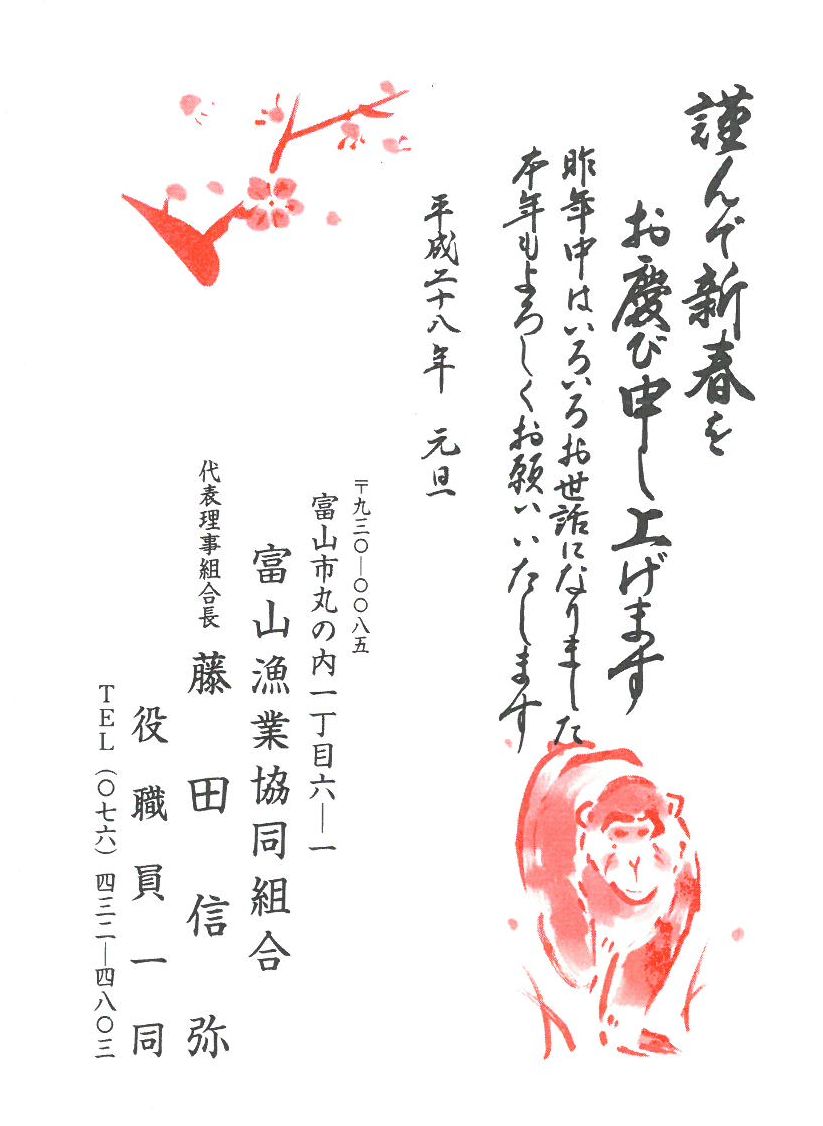 謹んで新春を
お慶び申し上げます
昨年中はいろいろお世話になりました
本年もよろしくお願いいたします
平成二十八年 元旦
〒九三〇―〇〇八五
富山市丸の内一丁目六―一
富山漁業協同組合
代表理事組合長 藤田信弥
役職員一同
TEL(〇七六)四三二―四八〇三